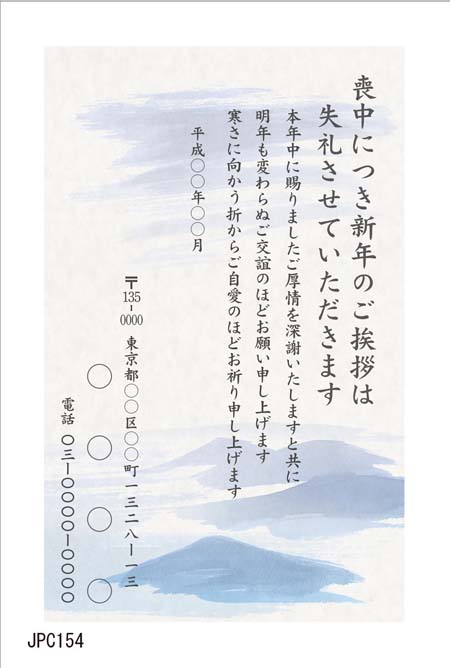 喪中につき新年のご挨拶は
失礼させていただきます
本年中に賜りましたご厚情を深謝いたしますと共に
明年も変わらぬご交誼のほどお願い申し上げます
寒さに向かう折からご自愛のほどお祈り申し上げます
平成〇〇年〇〇月
〒135-0000 東京都〇〇区〇〇町一三二八ー一三
〇〇〇〇
電話 〇三ー〇〇〇〇ー〇〇〇〇
JPC154